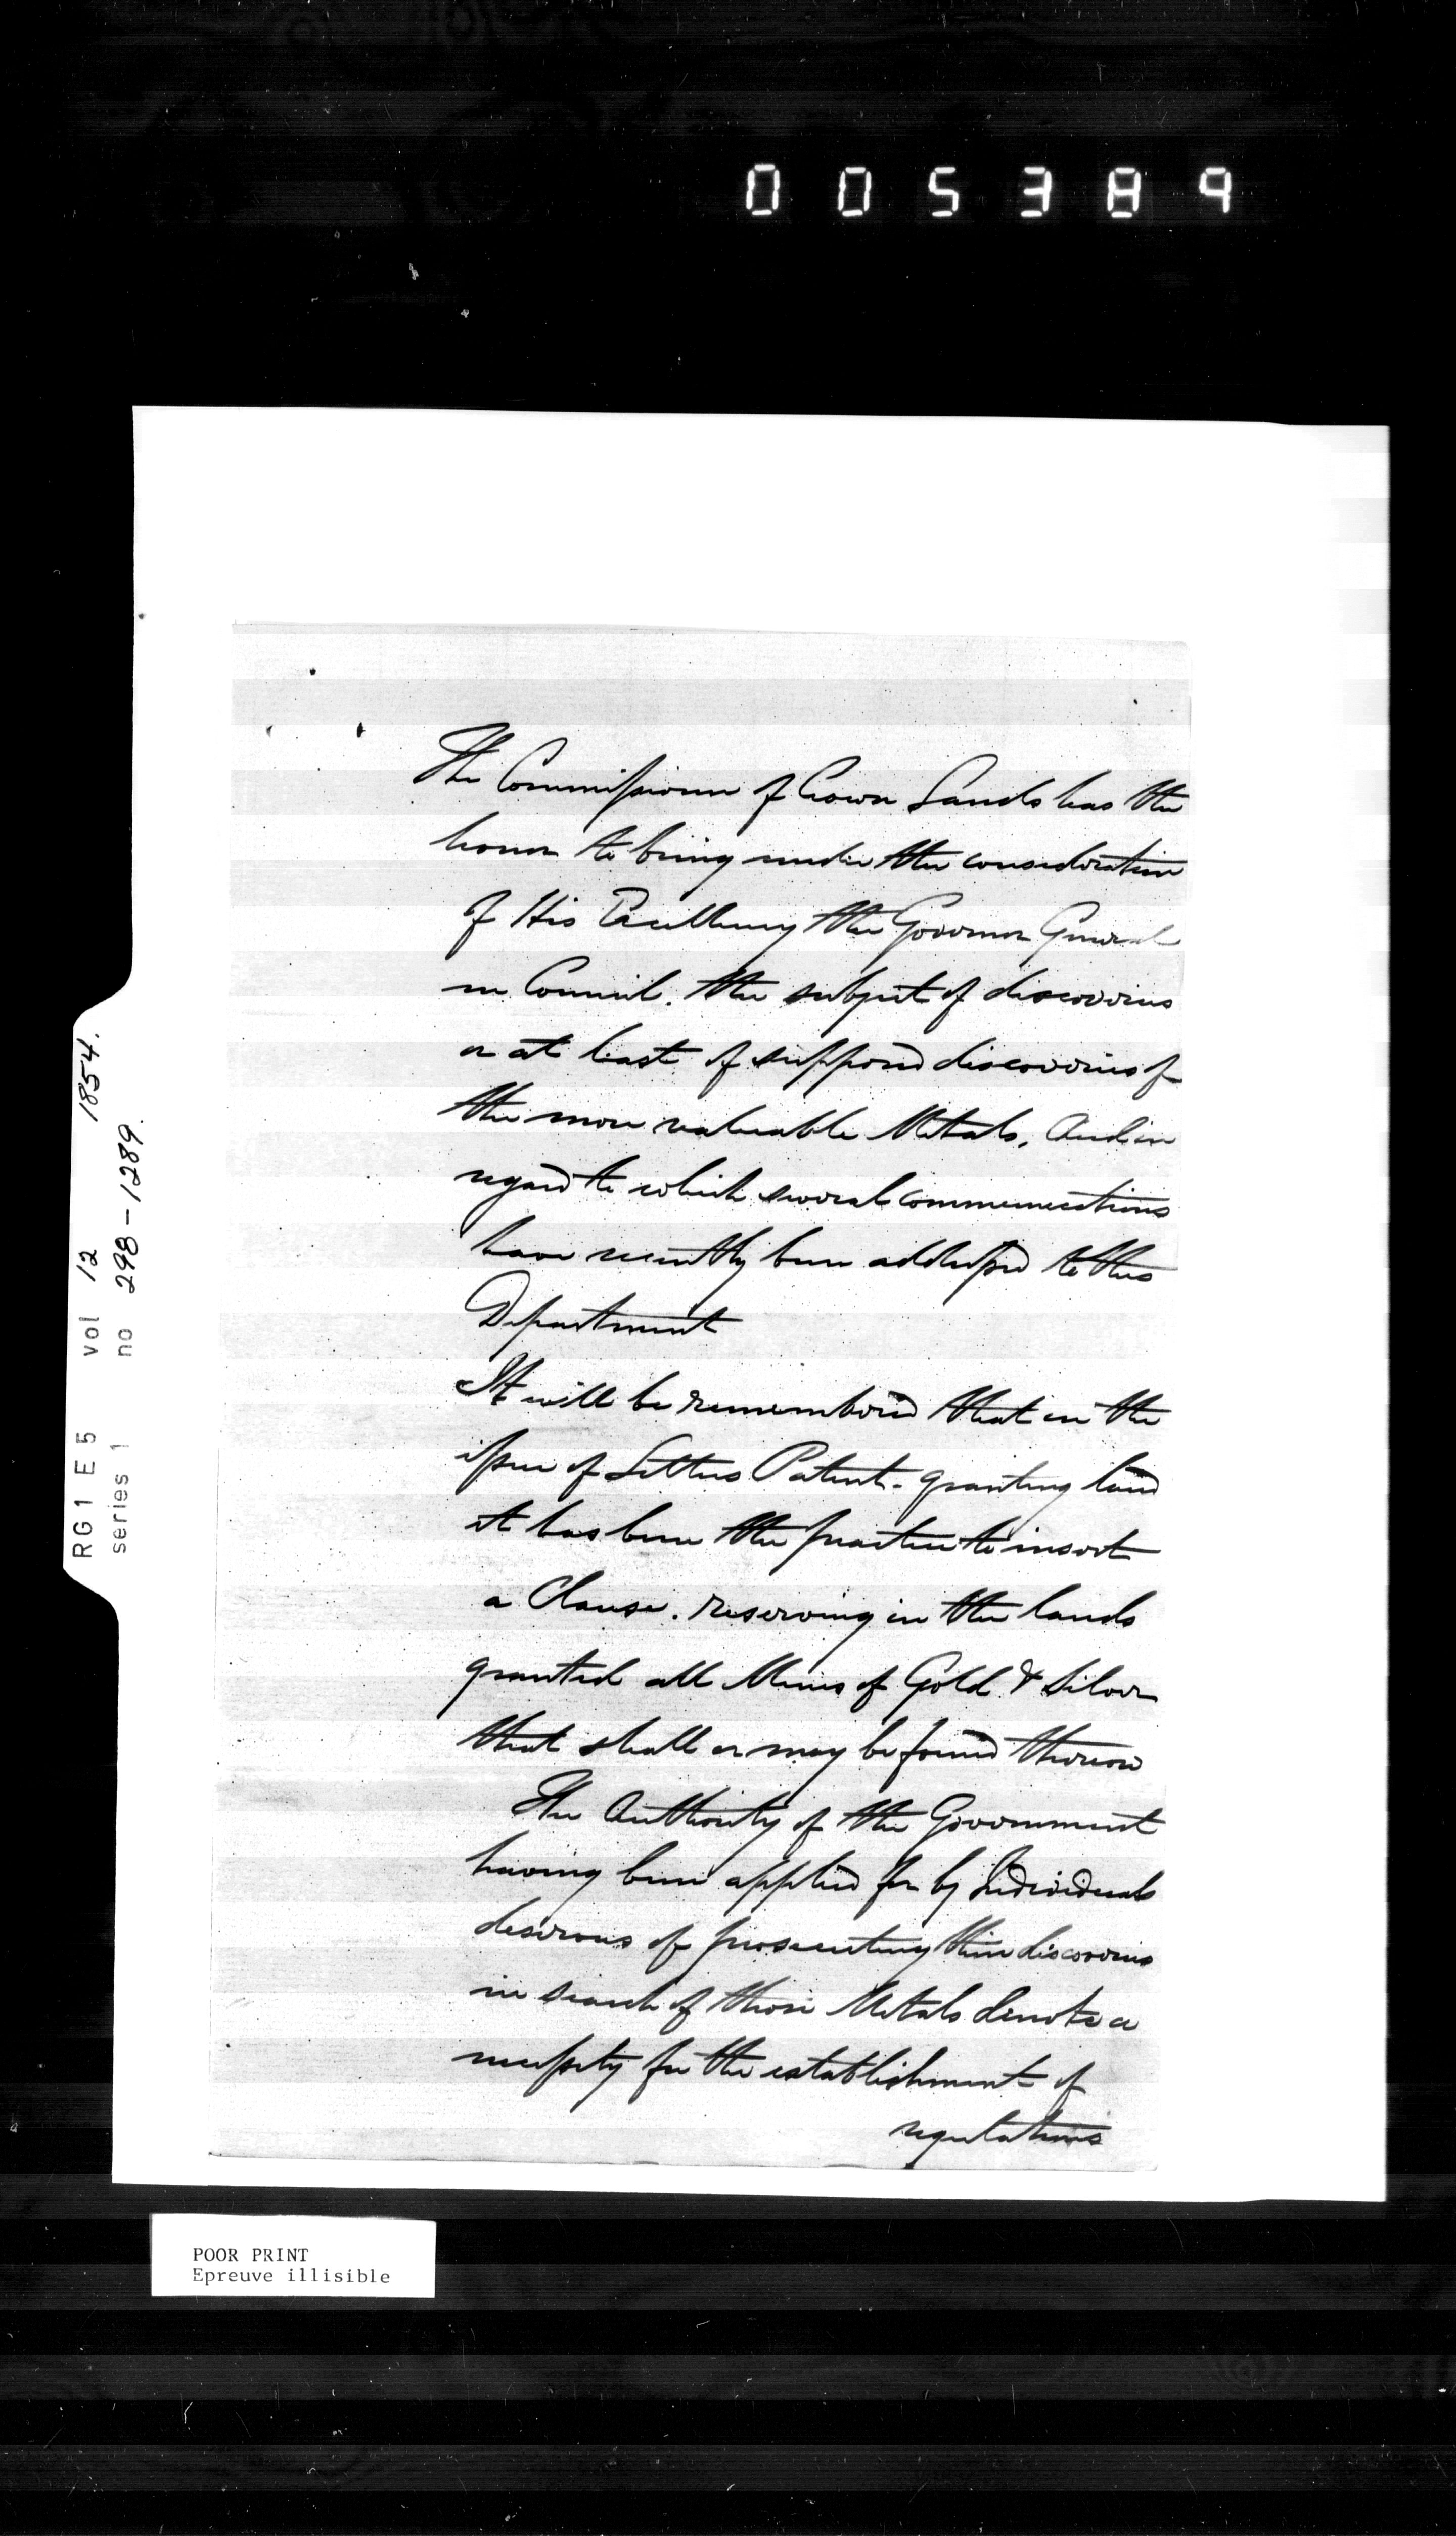 005389
RG1 E5 vol 12 1854.
series 1 no 298-1289.
The Commissioner of Crown Lands has the
honor to bring under the consideration
of His Excellency the Governor General
in Council. the subject of discoveries
or at least of supposed discoveries of
the more valuable Metals. And in
regard to which several communications
have recently been addressed to this
Department
It will be remembered that in the
issue of Letters Patent. granting land
it has been the practice to insert
a Clause. reserving in the lands
granted all Mines of Gold & Silver
that shall or may be found thereon
The Authority of the Government
having been applied for by Individuals
desirous of prosecuting their discoveries
in search of those Metals denote a
necessity for the establishment of
regulations
POOR PRINT
Epreuve illisible